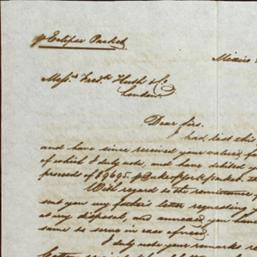 p Eclipse Packet
Mexico
Messrs Fredk Huth & Co
London
Dear Sirs,
I had last this
and have since received your valued
of which I duly note, and have
proceeds of $9605. p Packet
With regard to the remittance
send you my father's letter requesting
at my disposal, and annexed you have
same to serve in case of need.
I duly note your remarks